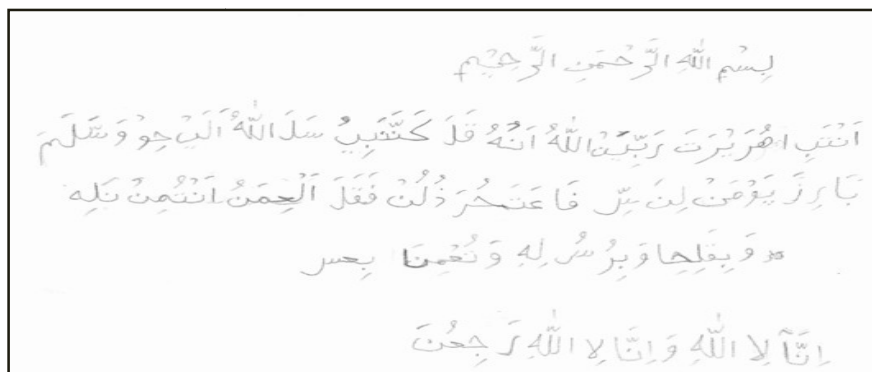 بِسْمِ اللّٰهِ الَرَّحْمَنِ الَرَّحِيْمِ
اَنْتَبِ اهُرَيْرَتَ رَبِّيَنْ اللّٰهُ اَنْهُ قَلَ كَنَّنَبِيُ سَلَ اللّٰهُ اَلَيْ حِوْ وَسَّلَمَ
بَاءِرِزَ يَوْمَنْ لِنَ سِرِّ فَاعَتَحُرَ ذُلُنْ فَقَلَ اَلْعِمَنُ اَنْتُمِنَ بَلِهِ
وَبِقَلِحِا وَبِرُسُ لِهِ وَتُعْمِنَا بِعس
اِنَّآ لِا اللّٰهِ وَاِنَّا لِا اللّٰهِ رَجِعُنَ